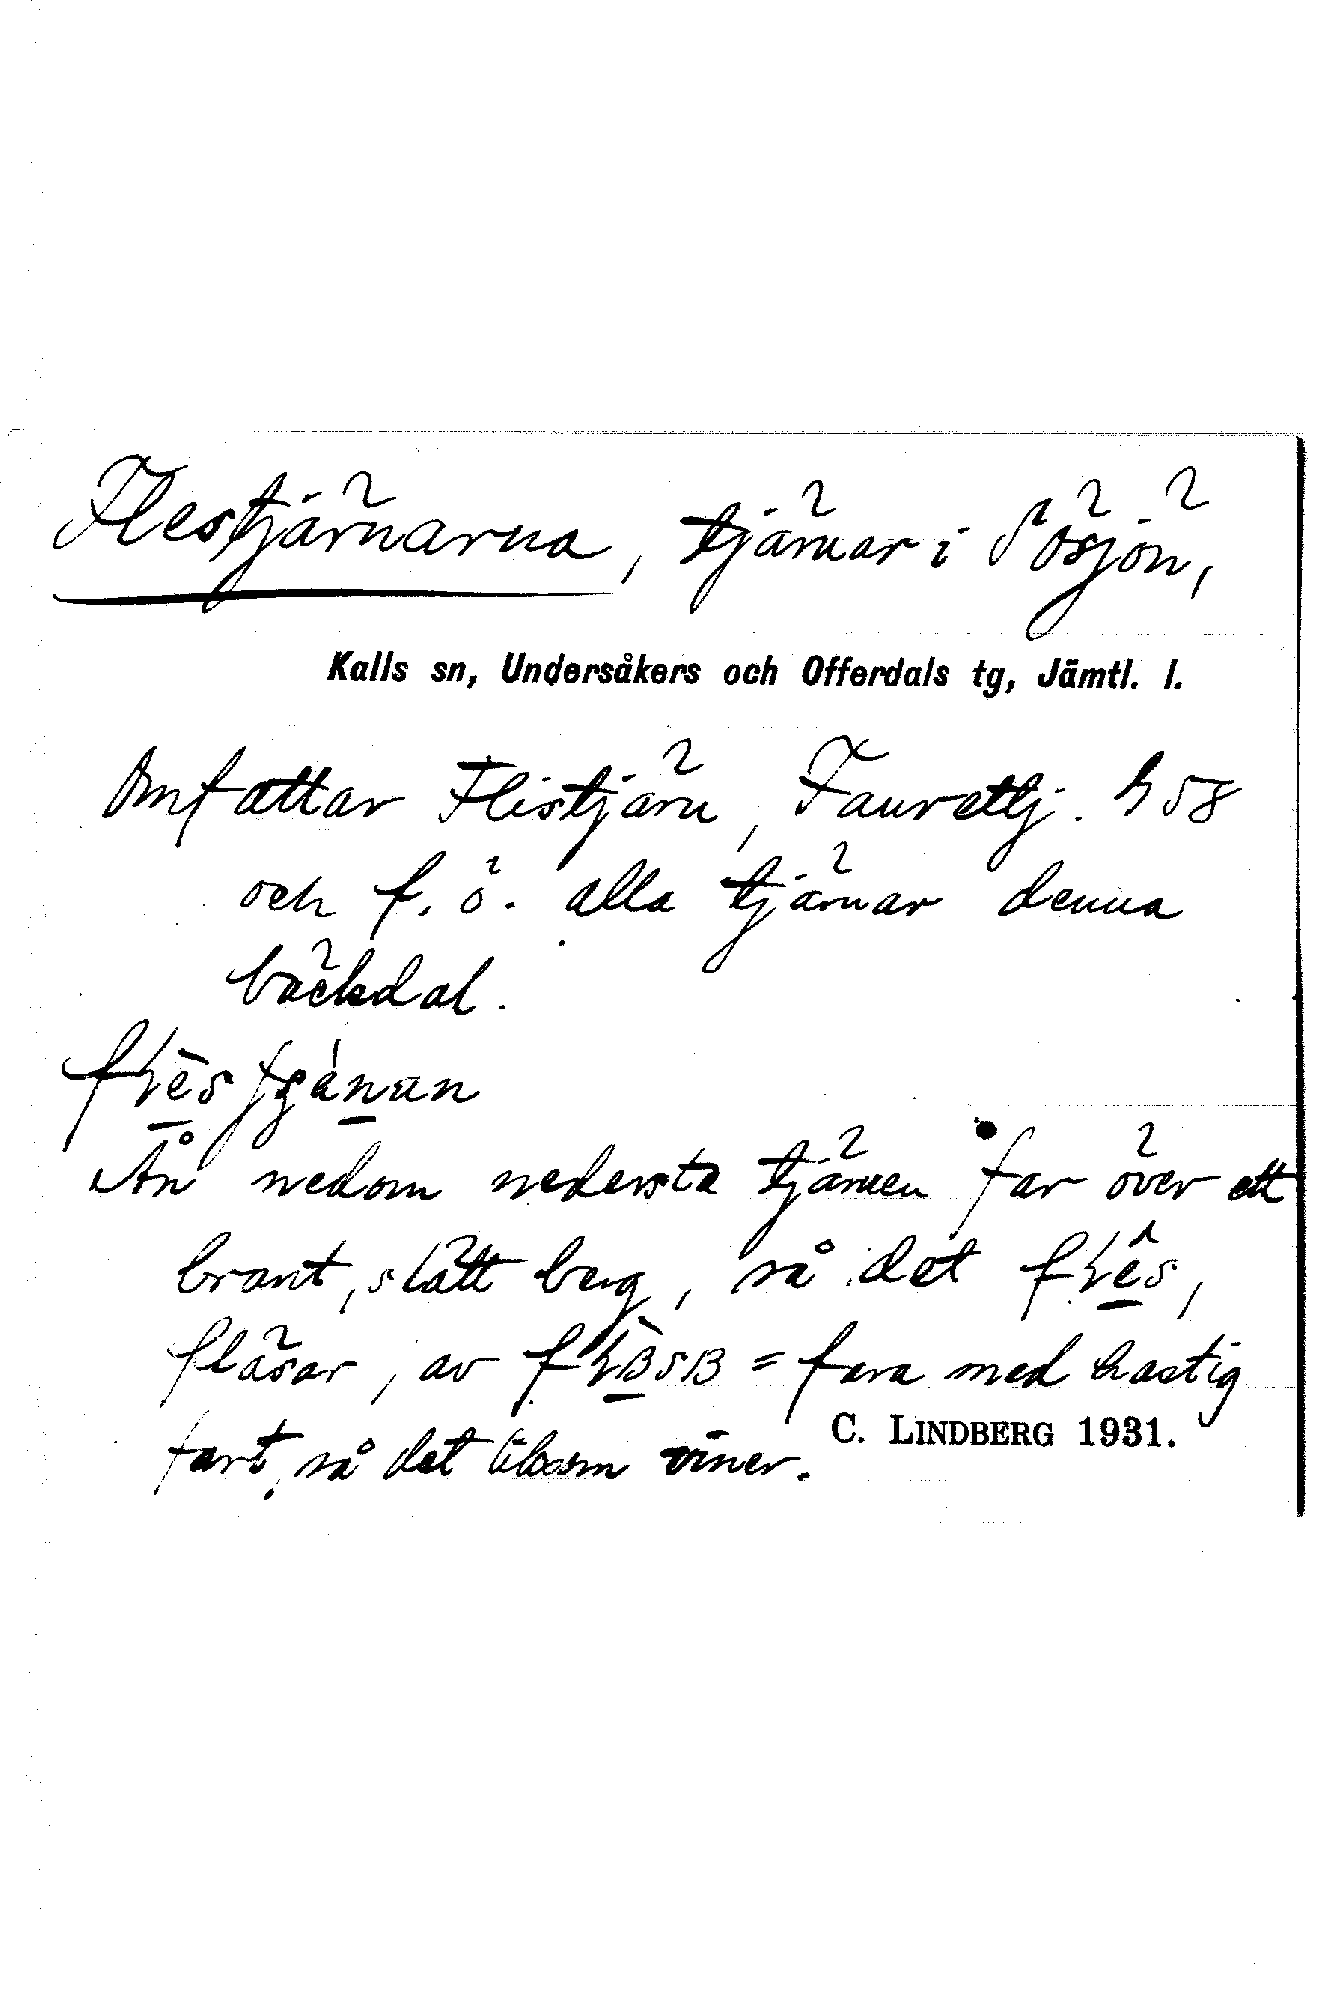 Flestjärnarna, tjärnar i Sösjön,
Kalls sn, Undersåkers och Offerdals tg, Jämtl. l.
Omfattar Flistjärn, Faurettj. h 58
och f. ö. alla tjärnar denna
bäckdal.
Ån nedom nedersta tjärnen far över ett
brant, slätt berg, så det
fläsar, av = fara med hastig
fart, så det liksom viner.
C. LINDBERG 1931.